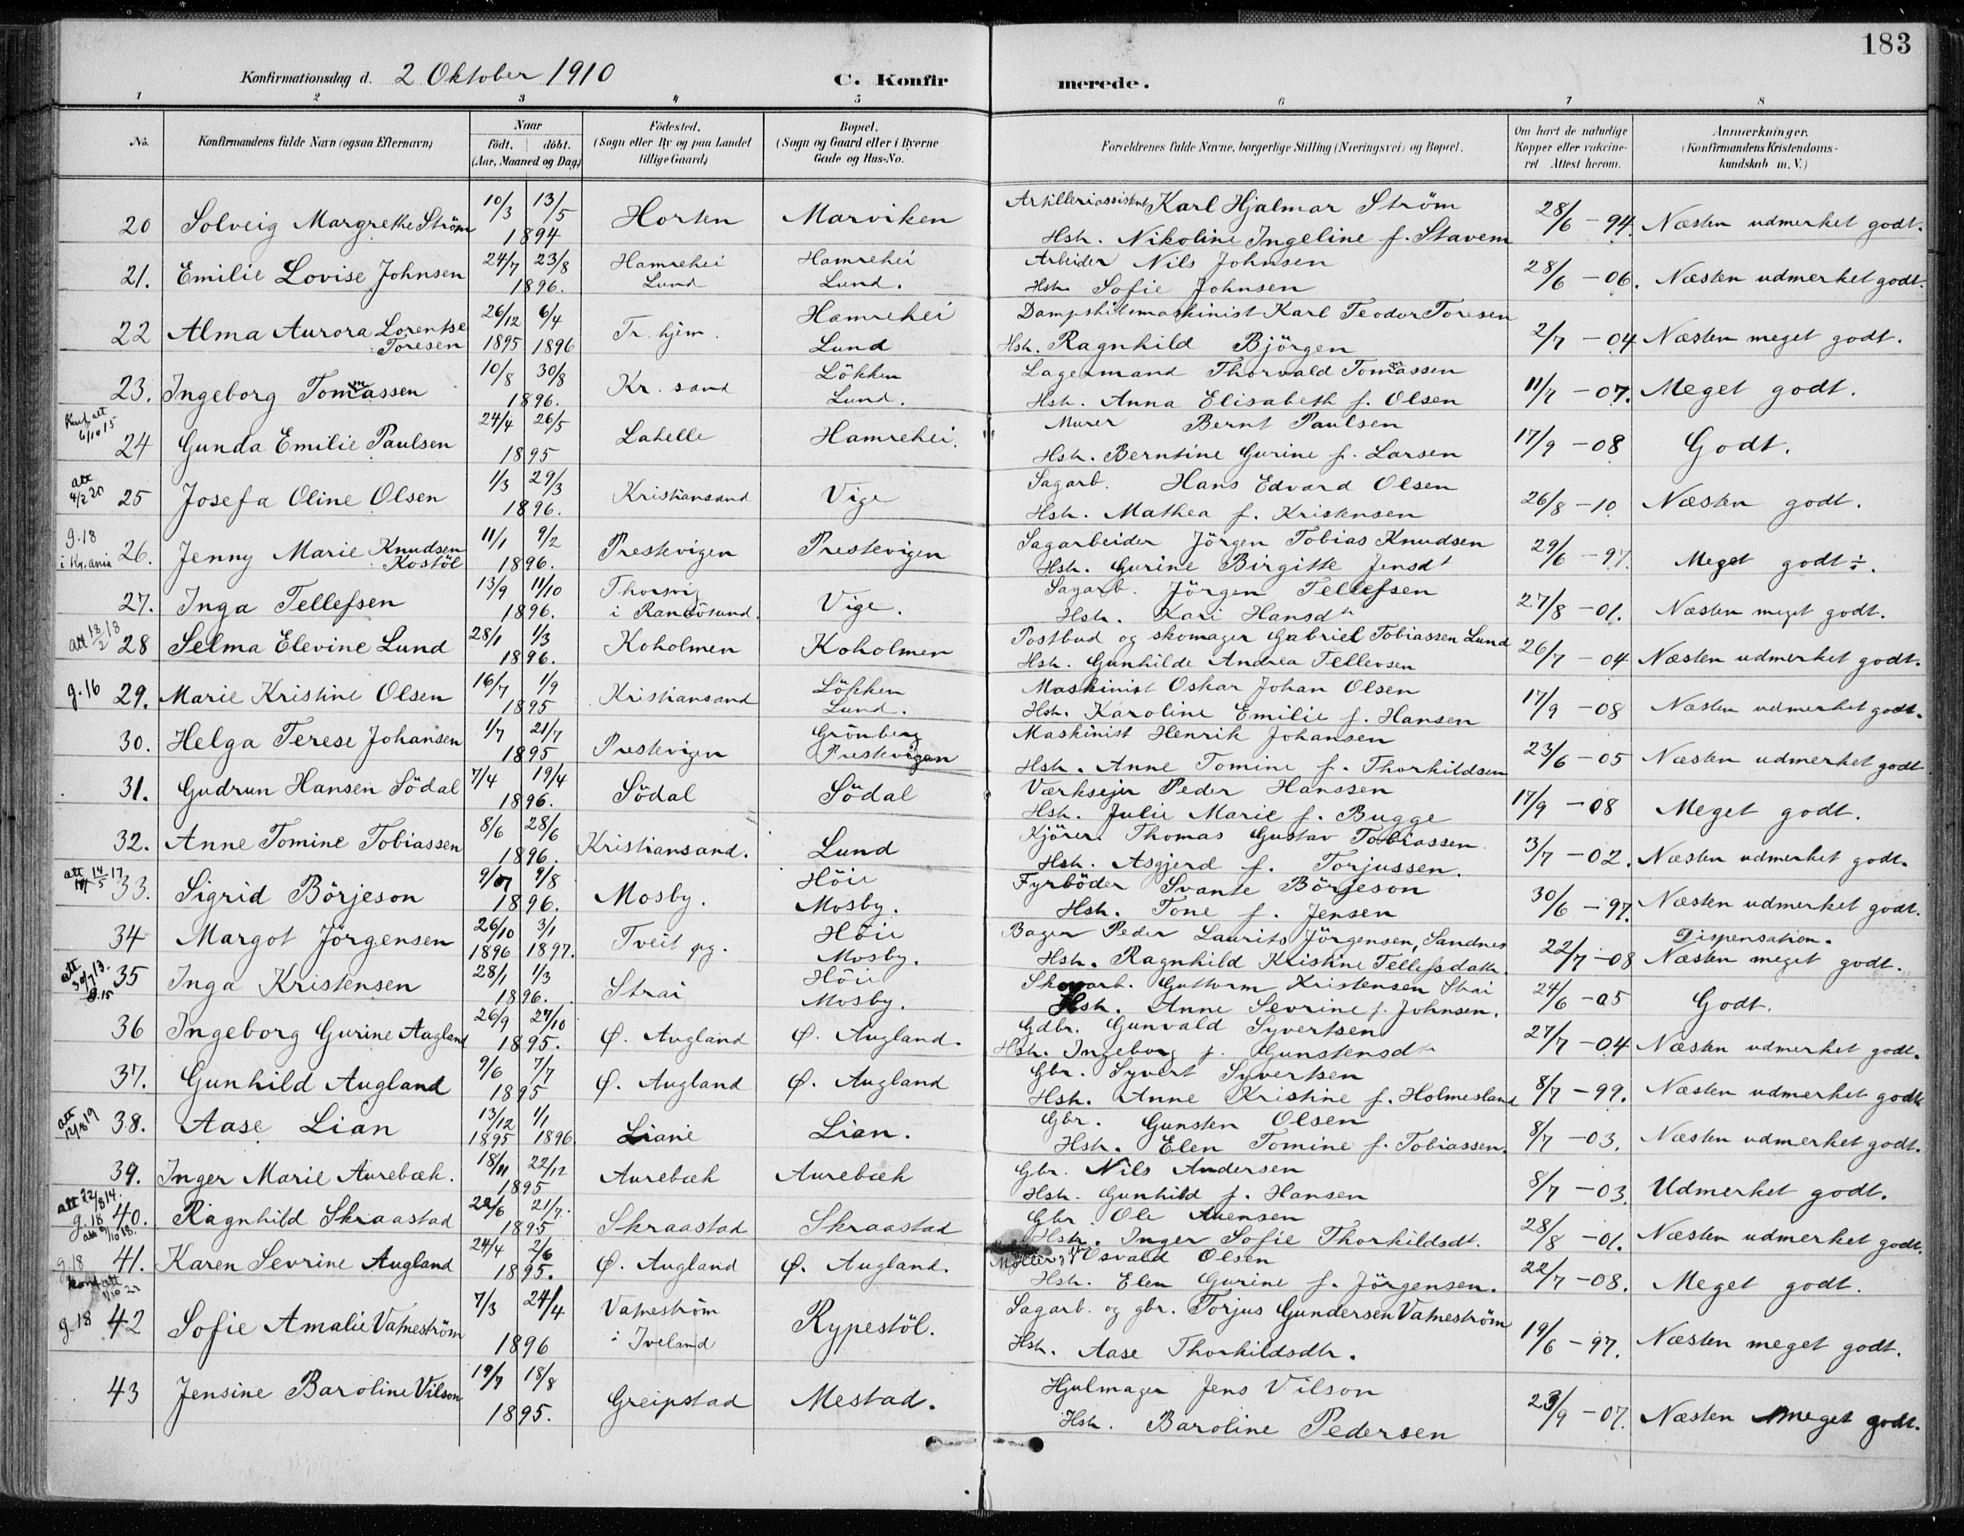 183
Konfirmationsdag d. 2 Oktober 1910 C. Konfirmerede.
1 2 3 4 5 6 7 8
No. Konfirmandens fulde Navn (ogsaa Efternavn) Naar født. døbt. (Aar, Maaned og Dag) Födested. (Sogn eller By og paa Landet tillige Gaard) Bopæl. (Sogn og Gaard eller i Byerne Gade og Hus-No. Forældrenes fulde Navne, borgerlige Stilling (Næringsvei) og Bopæl. Om havt de naturlige Kopper eller vakcineret Attest herom. Anmærkninger. (Konfirmandens Kristendomskundskab m. V.)
20 Solveig Margrethe Ström 10/3 13/5 1894 Horten Marviken Artilleriassistent Karl Hjalmar Ström
Hstr. Nikoline Ingeline f. Stavem 28/6 - 94. Næsten udmerket godt.
21. Emilie Lovise Johnsen 24/7 23/8 1896. Hamrehei Lund Hamrehei Lund. Arbeider Nils Johnsen
Hstr. Sofie Johnsen 28/6 - 06. Næsten udmerket godt.
22 Alma Aurora Lorentse Toresen 26/12 6/4 1895 1896 Tr.hjem. Hamrehei Lund Dampskibsmaskinist Karl Teodor Toresen
Hstr. Ragnhild Björgen 2/7 - 04 Næsten meget godt.
23. Ingeborg Tommassen 10/8 30/8 1896. Kr. sand Lökken Lund. Lagermand Thorvald Tommassen
Hstr. Anna Elisabeth f. Olsen 11/7 - 07. Meget godt.
att 6/10 15
24 Gunda Emilie Paulsen 24/4 26/5 1895 Lahelle Hamrehei. Murer Bernt Paulsen
Hstr. Berntine Gurine f. Larsen 17/9 - 08 Godt.
att 4/2 20
25 Josefa Oline Olsen 1/3 29/3 1896. Kristiansand Vige Sagarb. Hans Edvard Olsen
Hstr. Mathea f. Kristensen 26/8 - 10 Næsten godt.
g. 18 i Kr.ania
26. Jenny Marie Knudsen Kostöl 11/1 9/2 1896. Prestevigen Prestevigen Sagarbeider Jörgen Tobias Knudsen
Hstr. Gurine Birgitte Jensdt 29/6 - 97. Meget godt ÷.
27. Inga Tellefsen 13/9 11/10 1896. Thorsvig i Randösund. Vige. Sagarb. Jörgen Tellefsen
Hstr. Kari Hansdtr 27/8 - 01. Næsten meget godt.
att 18/2 18
28 Selma Elevine Lund 28/1 1/3 1896. Koholmen Koholmen Postbud og skomager Gabriel Tobiassen Lund
Hstr. Gunhilde Andrea Tellevsen 26/7 - 04 Næsten udmerket godt.
g. 16
29. Marie Kristine Olsen 16/7 1/9 1895 Kristiansand Lökken Lund. Maskinist Oskar Johan Olsen
Hstr. Karoline Emilie f. Hansen 17/9 - 08 Næsten udmerket godt.
30. Helga Terese Johansen 1/7 21/7 1895 Prestevigen Grönberg Prestevigen Maskinist Henrik Johansen
Hstr. Anne Tomine f. Thorkildsen 23/6 - 05 Næsten udmerket godt
31. Gudrun Hansen Södal 7/4 19/4 1896. Södal Södal Værkseier Peder Hanssen
Hstr. Julie Marie f. Bugge 17/9 - 08 Meget godt.
32. Anne Tomine Tobiassen 8/6 28/6 1896. Kristiansand. Lund Kjörer. Thomas Gustav Tobiassen
Hstr. Asgjerd f. Torjussen. 3/7 - 02. Næsten udmerket godt.
att 14/5 17
33. Sigrid Börjeson 9/7 9/8 1896. Mosby. Höie Mosby. Fyrböder Svante Börjeson
Hstr. Tone f. Jensen 30/6 - 97. Næsten udmerket godt.
34 Margot Jörgensen 26/10 3/1 1896 1897. Tveit pg. Höie Mosby. Bager Peder Laurits Jörgensen, Sandnes
Hstr. Ragnhild Kristine Tellefsdatter. 22/7 - 08 Dispensation. Næsten meget godt.
att 30/7 13. g. 15
35 Inga Kristensen 28/1 1/3 1896. Strai Höie Mosby. Skogarb. Guttorm Kristensen Strai
Hstr. Anne Sevrine f. Johnsen. 24/6 - 05 Godt.
36 Ingeborg Gurine Augland 26/9 27/10 1895. Ø. Augland Ø. Augland. Gdbr. Gunvald Syvertsen
Hstr. Ingeborg f. Gunstensdtr 27/7 - 04 Næsten udmerket godt.
37. Gunhild Augland 9/6 7/7 1895 Ø. Augland Ø. Augland Gbr. Syvert Syvertsen
Hstr. Anne Kristine f. Holmesland 8/7 - 99. Næsten udmerket godt
att 12/8 19
38. Aase Lian 13/12 1/1 1895 1896 Liane Lian. Gbr. Gunsten Olsen
Hstr. Elen Tomine f. Tobiassen. 8/7 - 03. Næsten udmerket godt.
39. Inger Marie Aurebæk. 18/11 22/12 1895 Aurebæk Aurebæk Gbr. Nils Andersen
Hstr. Gunhild f. Hansen 8/7 - 03. Udmerket godt.
att 22/8 14. g. 18
40. Ragnhild Skraastad 22/6 21/7. 1895 Skraastad Skraastad Gbr. Ole Auensen
Hstr. Inger Sofie Thorkildsdt. 28/8 - 01. Næsten udmerket godt.
att 9/10 18. g. 18
41. Karen Sevrine Augland 24/4 2/6 1895. Ø. Augland Ø. Augland. Osvald Olsen
Hstr. Elen Gurine f. Jörgensen. 22/7 - 08. Meget godt.
g. 18
42 Sofie Amalie Vatneström 7/3 24/4 1896 Vatneström i Iveland Rypestöl. Sagarb. og gbr. Torjus Gundersen Vatneström
Hstr. Aase Thorkildsdtr. 19/6 - 97. Næsten meget godt.
43 Jensine Baroline Vilson 19/7 18/8 1895. Greipstad Mestad. Hjulmager Jens Vilson
Hstr. Baroline Pedersen 23/9 - 07. Næsten meget godt.